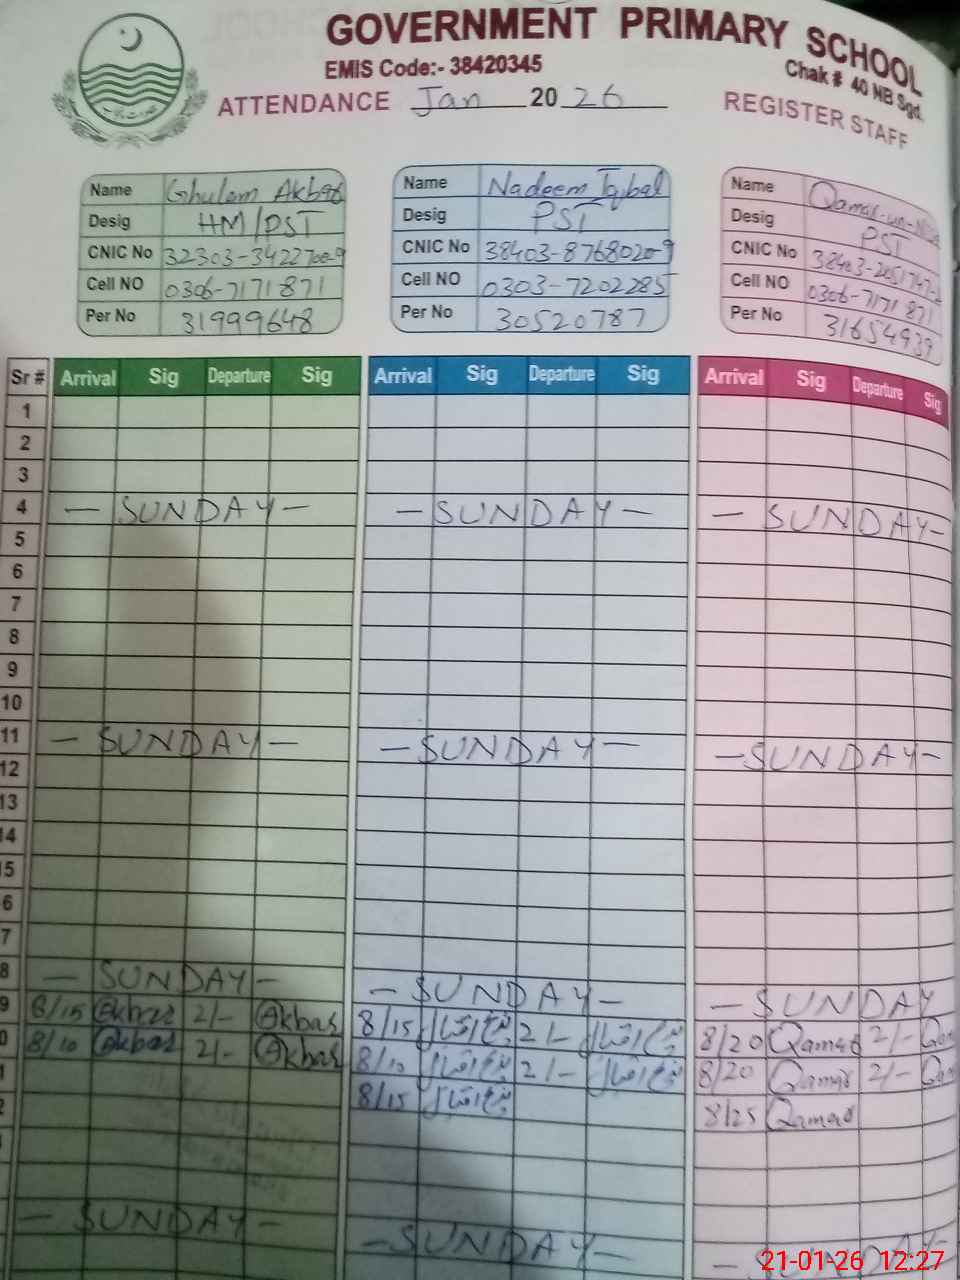 GOVERNMENT PRIMARY SCHOOL
EMIS Code:- 38420345
Chak # 40 NB Sgd.
ATTENDANCE Jan 20 26 REGISTER STAFF
Name Ghulam Akbar
Desig HM/PST
CNIC No
Cell NO 0306-7171871
Per No 31999648
Name Nadeem Iqbal
Desig PST
CNIC No 38403-8768020-9
Cell NO 0303-7202285
Per No 30520787
Name Qamar-un-Nisa
Desig PST
CNIC No
Cell NO 0306-7171871
Per No 31654939
Sr # Arrival Sig Departure Sig Arrival Sig Departure Sig Arrival Sig Departure Sig
1
2
3
4 — SUNDAY — — SUNDAY — — SUNDAY —
5
6
7
8
9
10
11 — SUNDAY — — SUNDAY — — SUNDAY —
12
13
14
15
6
7
8 — SUNDAY — — SUNDAY — — SUNDAY
9 8/15 Akbar 2/- Akbar 8/15 2/- 8/20 Qamar 2/-
0 8/10 Akbar 2/- Akbar 8/10 2/- 8/20 Qamar 2/-
1 8/15 8/25 Qamar
2
— SUNDAY — — SUNDAY — — SUNDAY —
21-01-26 12:27